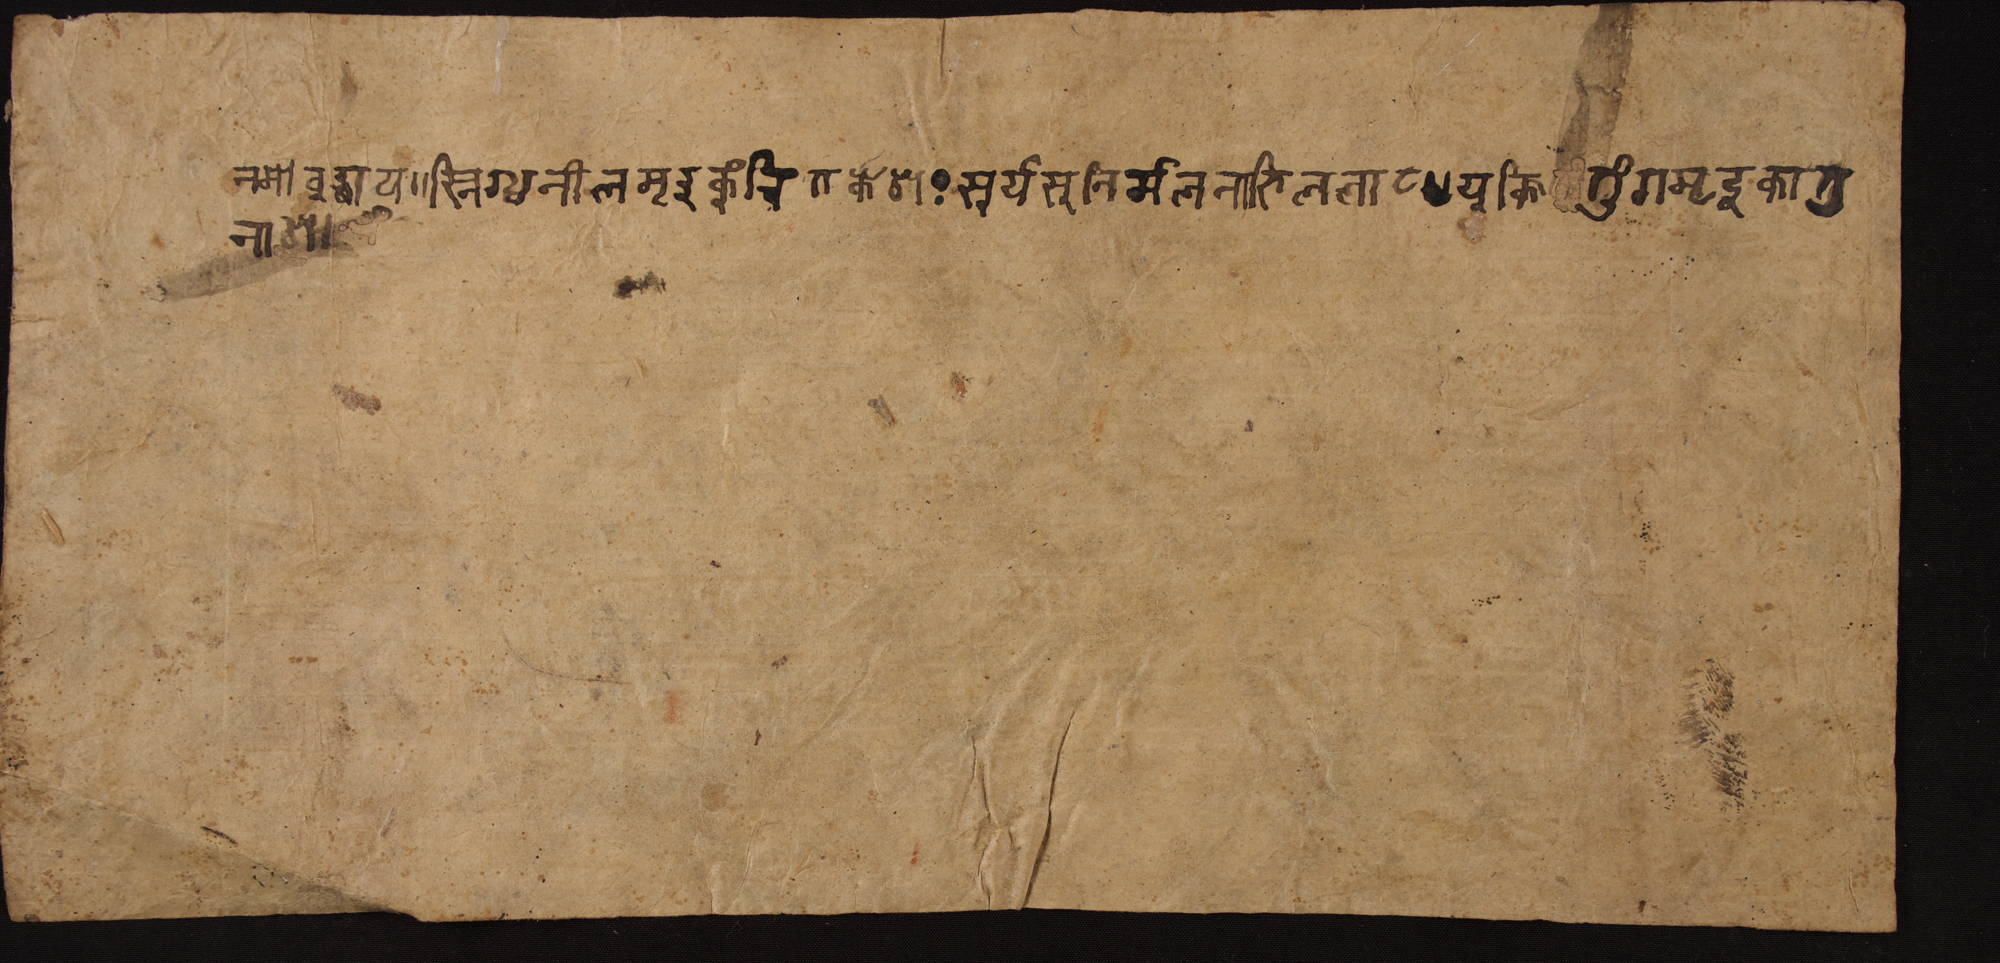 नमो बुद्धाय॥ स्निग्धनीलमृदुकुंचितकेशः सूर्यसुनिर्मलनाभिललाट युक्ति तुंगमृदूकायु
नाश॥